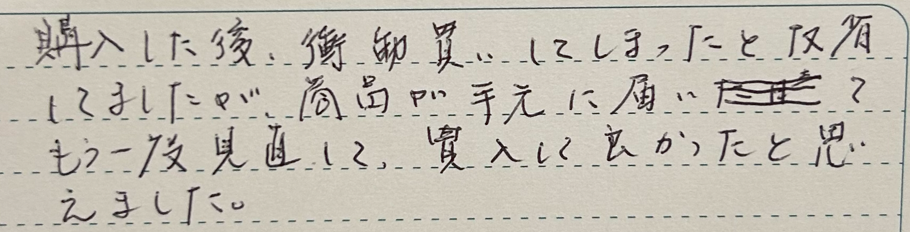 購入した後、衝動買いしてしまったと反省
してましたが、商品が手元に届いて
もう一度見直して、買入して良かったと思い
えました。